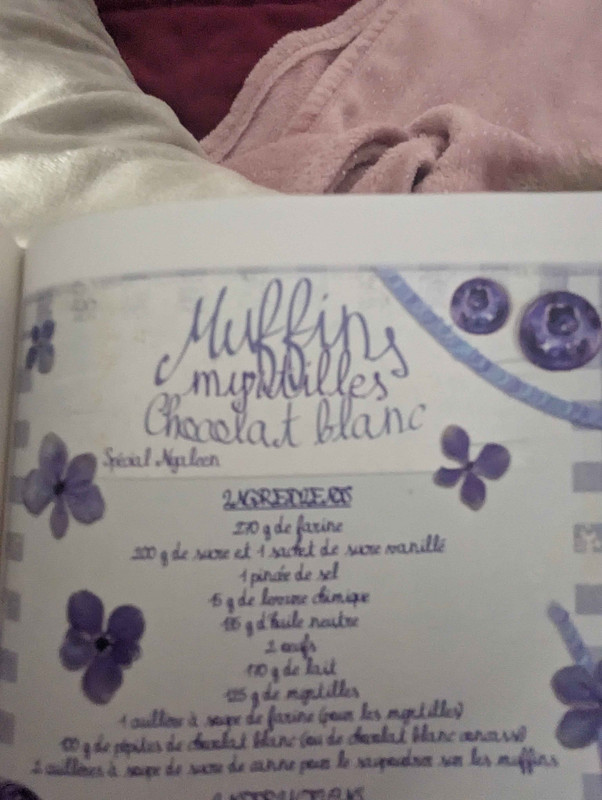 Muffins
myrtilles
Chocolat blanc
Spécial Ngaleen
INGREDIENTS
270 g de farine
200 g de sucre et 1 sachet de sucre vanillé
1 pincée de sel
15 g de levure chimique
g d'huile neutre
2 œufs
170 g de lait
125 g de myrtilles
1 cuillère à soupe de farine (pour les myrtilles)
100 g de pépites de chocolat blanc (ou de chocolat blanc concassé)
2 cuillères à soupe de sucre de canne pour le saupoudrer sur les muffins
INSTRUCTIONS